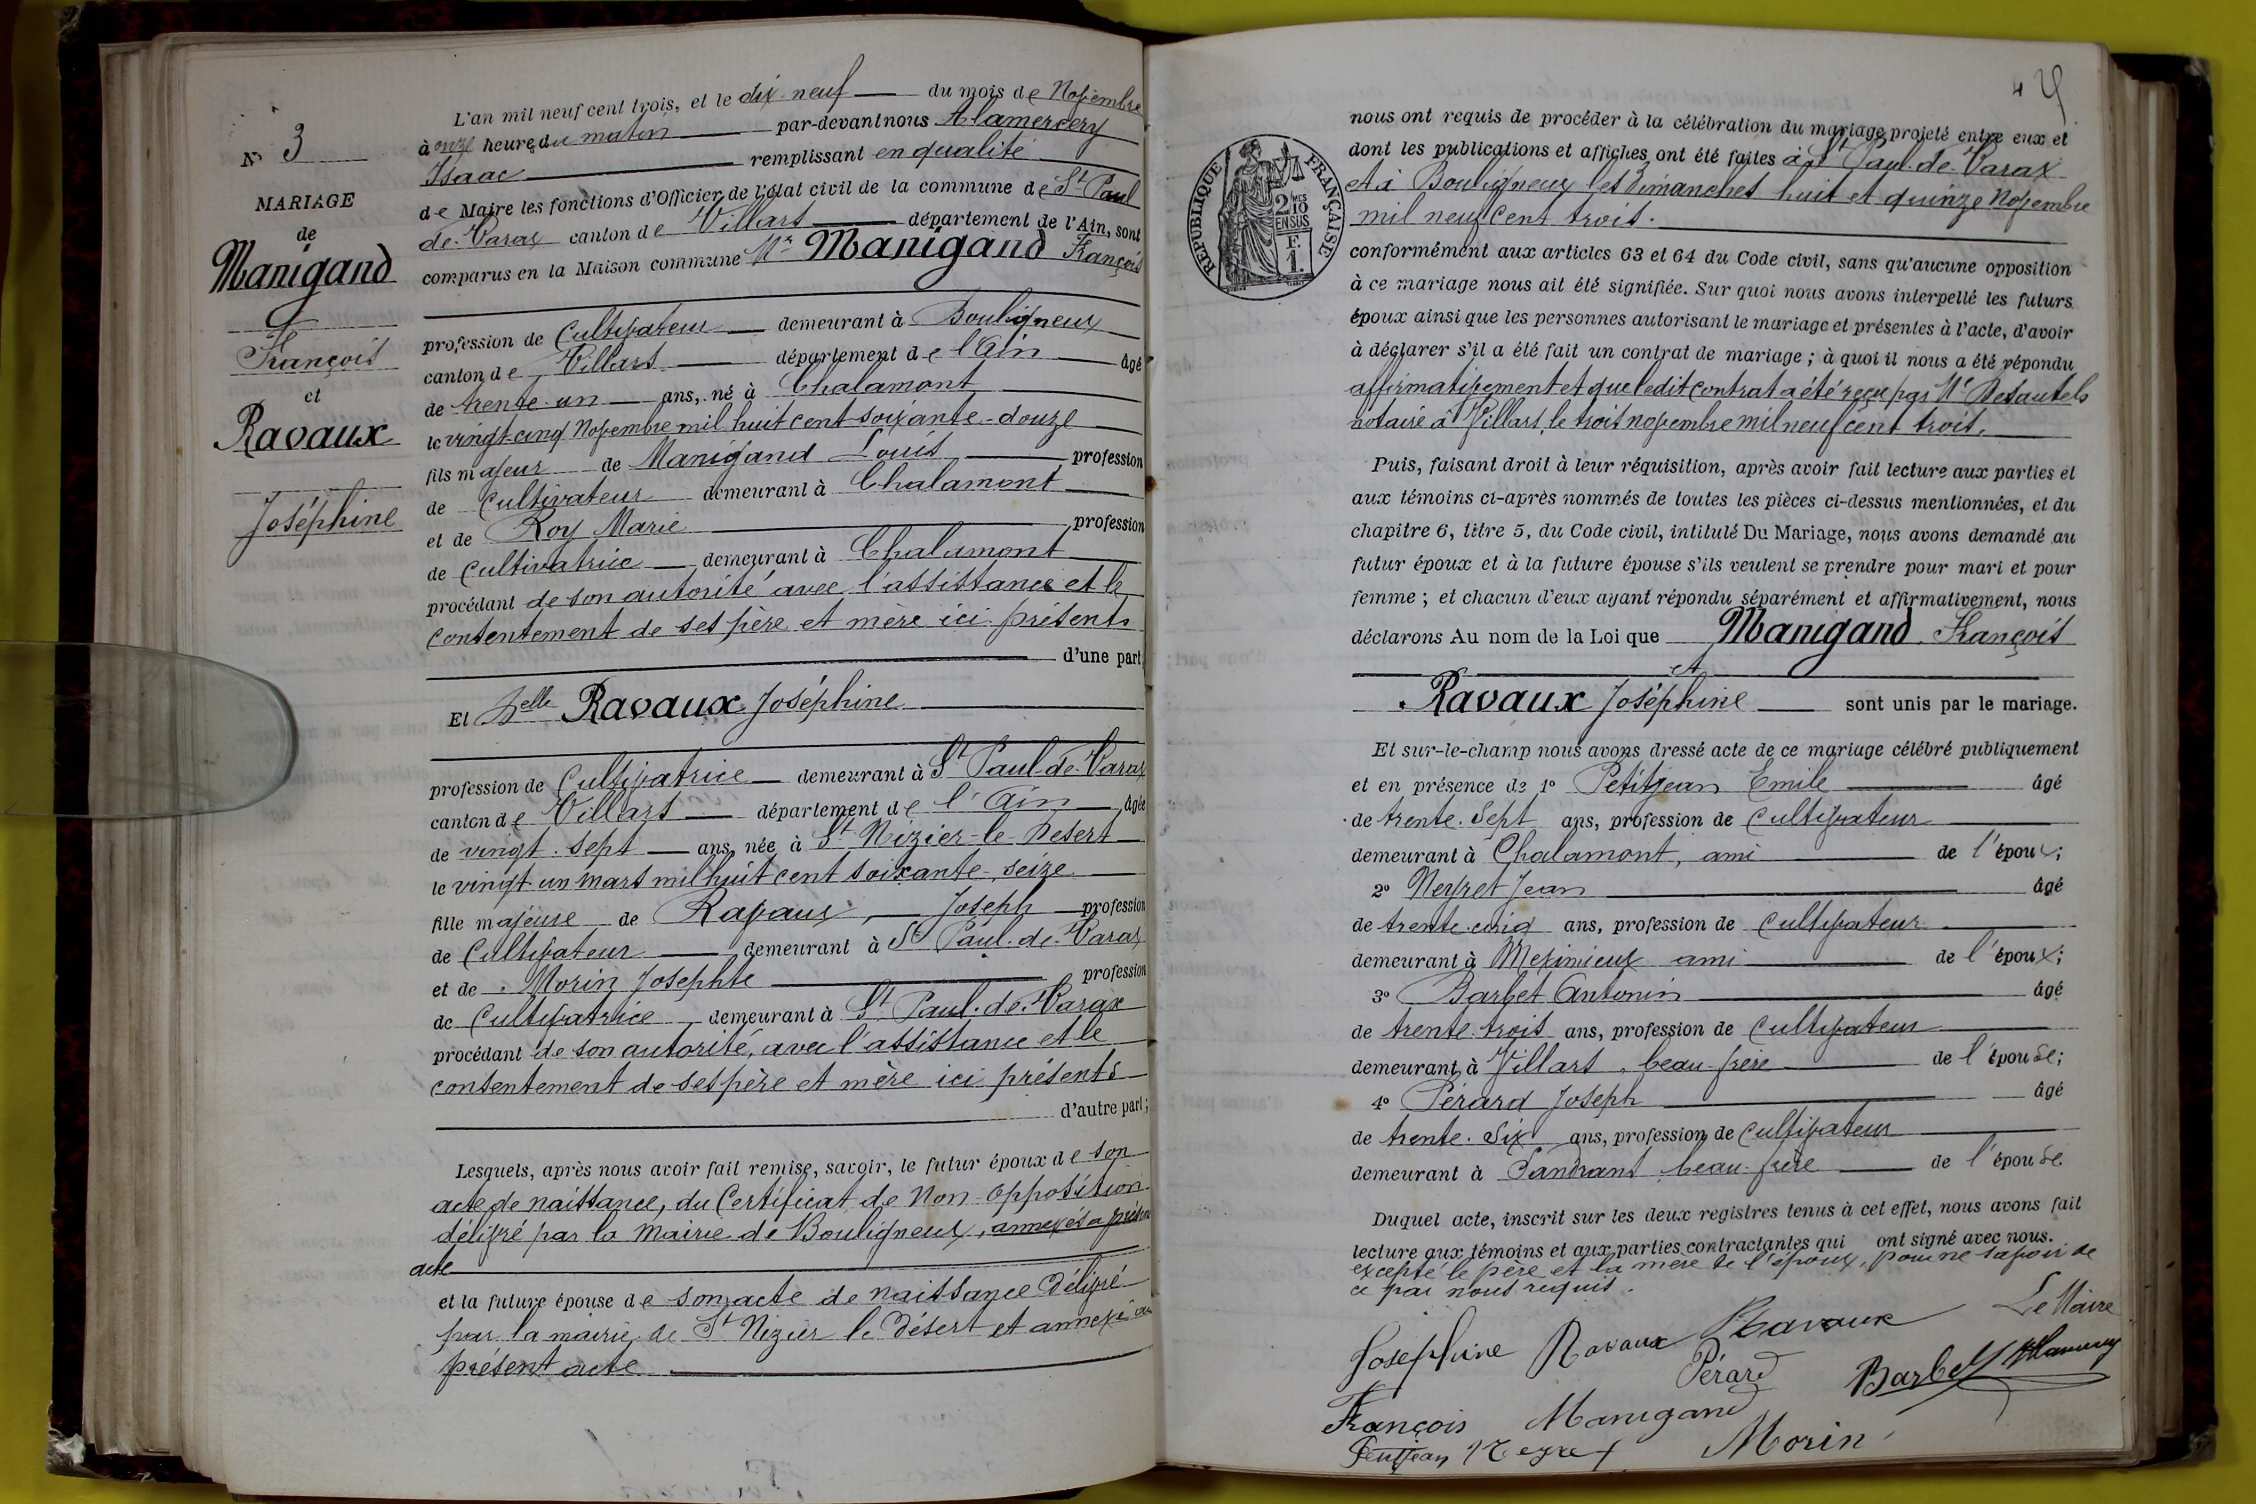 N° 3
MARIAGE
de
Manigand
François
et
Ravaux
Joséphine
L'an mil neuf cent trois, et le dix-neuf du mois de Novembre
à onze heures du matin par-devant nous Alamercery
Isaac remplissant en qualité
de Maire les fonctions d'Officier de l'état civil de la commune de St Paul
de-Varax canton de Villars département de l'Ain, sont
comparus en la Maison commune Mr Manigand François
profession de Cultivateur demeurant à Bouligneux
canton de Villars département de l'Ain âgé
de trente-un ans, né à Chalamont
le vingt-cinq Novembre mil huit cent soixante-douze
fils majeur de Manigand Louis profession
de Cultivateur demeurant à Chalamont
et de Roy Marie profession
de Cultivatrice demeurant à Chalamont
procédant de son autorité avec l'assistance et le
consentement de ses père et mère ici présents
d'une part
Et Delle Ravaux Joséphine
profession de Cultivatrice demeurant à St Paul-de-Varax
canton de Villars département de l'Ain âgée
de vingt-sept ans, née à St Nizier-le-Désert
le vingt un mars mil huit cent soixante-seize
fille majeure de Ravaux Joseph profession
de Cultivateur demeurant à St Paul-de-Varax
et de Morin Josephte profession
de Cultivatrice demeurant à St Paul-de-Varax
procédant de son autorité, avec l'assistance et le
consentement de ses père et mère ici présents
d'autre part;
Lesquels, après nous avoir fait remise, savoir, le futur époux de son
acte de naissance, du Certificat de Non-Opposition
délivré par la mairie de Bouligneux, annexés a présent
acte
et la future épouse de son acte de naissance délivré
par la mairie de St Nizier le Désert et annexé au
présent acte
nous ont requis de procéder à la célébration du mariage projeté entre eux et
dont les publications et affiches ont été faites à St Paul-de-Varax
et à Bouligneux les dimanches huit et quinze Novembre
mil neuf cent trois.
RÉPUBLIQUE FRANÇAISE
2/10
EN SUS
F.
1.
conformément aux articles 63 et 64 du Code civil, sans qu'aucune opposition
à ce mariage nous ait été signifiée. Sur quoi nous avons interpellé les futurs
époux ainsi que les personnes autorisant le mariage et présentes à l'acte, d'avoir
à déclarer s'il a été fait un contrat de mariage; à quoi il nous a été répondu
affirmativement et que ledit contrat a été reçu par Me Desautels
notaire à Villars, le trois novembre mil neuf cent trois.
Puis, faisant droit à leur réquisition, après avoir fait lecture aux parties et
aux témoins ci-après nommés de toutes les pièces ci-dessus mentionnées, et du
chapitre 6, titre 5, du Code civil, intitulé Du Mariage, nous avons demandé au
futur époux et à la future épouse s'ils veulent se prendre pour mari et pour
femme; et chacun d'eux ayant répondu séparément et affirmativement, nous
déclarons Au nom de la Loi que Manigand François
et
Ravaux Joséphine sont unis par le mariage.
Et sur-le-champ nous avons dressé acte de ce mariage célébré publiquement
et en présence de 1° Petitjean Emile âgé
de trente-sept ans, profession de Cultivateur
demeurant à Chalamont, ami de l'époux;
2° Neyret Jean âgé
de trente-cinq ans, profession de Cultivateur
demeurant à Meximieux ami de l'époux;
3° Barbet Antonin âgé
de trente-trois ans, profession de Cultivateur
demeurant à Villars, beau-frère de l'épouse;
4° Pérard Joseph âgé
de trente-six ans, profession de Cultivateur
demeurant à Sandrans beau-frère de l'épouse.
Duquel acte, inscrit sur les deux registres tenus à cet effet, nous avons fait
lecture aux témoins et aux parties contractantes qui ont signé avec nous.
excepté le père et la mère de l'époux, pour ne savoir de
ce par nous requis.
Josephine Ravaux Ravaux Le Maire
Pérard Barbet Alamercery
François Manigand
Petitjean Neyret Morin